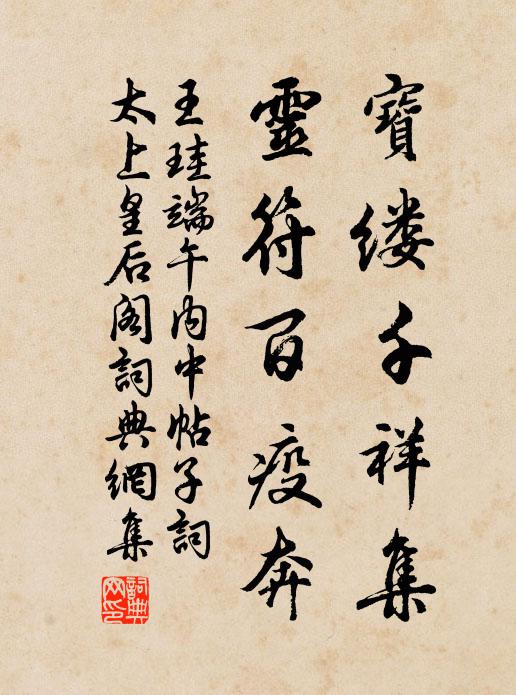 寶缕千祥集
靈符百疫奔
王珪端午内中帖子詞
太上皇后阁詞典網集
詞典网印